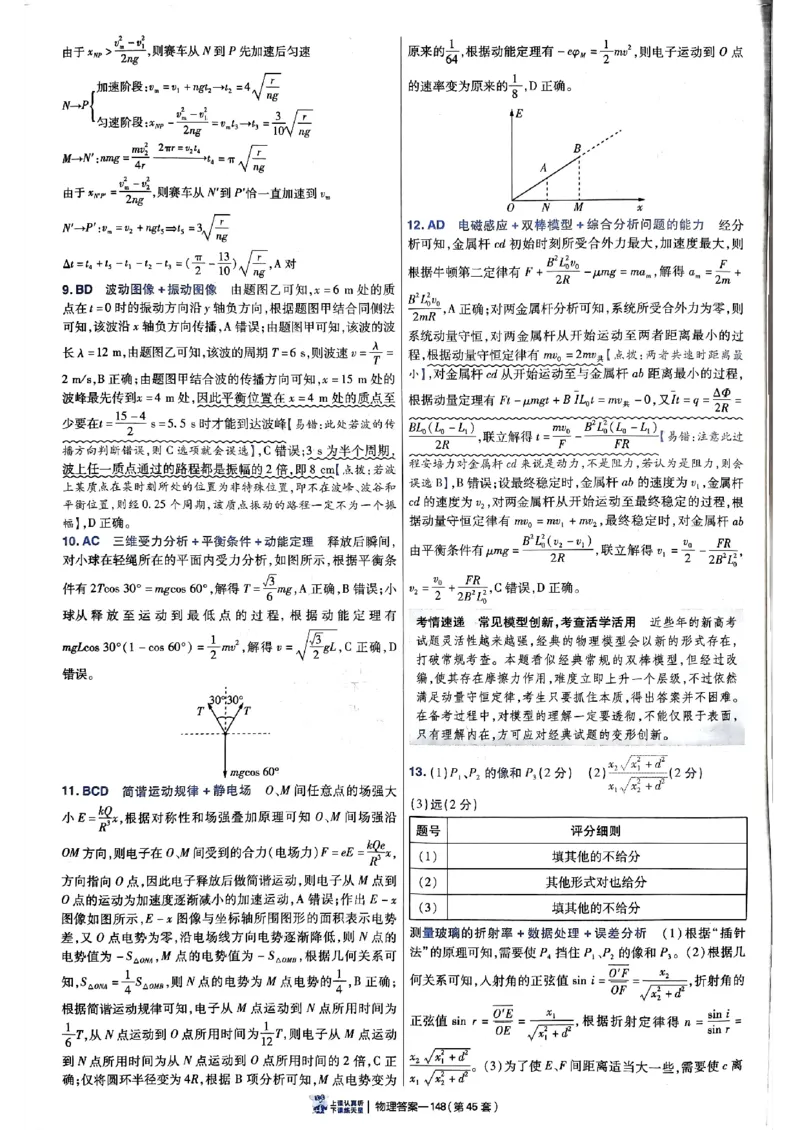 由于 x_NP > (v_m² − v_1²)/(2ng),则赛车从 N 到 P 先加速后匀速
加速阶段:v_m = v_1 + ngt_2→t_2 = 4√(r/(ng))
N→P{
匀速阶段:x_NP − (v_m² − v_1²)/(2ng) = v_m t_3→t_3 = (3/10)√(r/(ng))
M→N′:nmg = mv_2²/(4r) —2πr = v_2t_4→ t_4 = π√(r/(ng))
由于 x_N′P′ = (v_m² − v_2²)/(2ng),则赛车从 N′到 P′恰一直加速到 v_m
N′→P′:v_m = v_2 + ngt_5⇒t_5 = 3√(r/(ng))
Δt = t_4 + t_5 − t_1 − t_2 − t_3 = (π/2 − 13/10)√(r/(ng)),A 对
9. BD 波动图像 + 振动图像 由题图乙可知,x = 6 m 处的质
点在 t = 0 时的振动方向沿 y 轴负方向,根据题图甲结合同侧法
可知,该波沿 x 轴负方向传播,A 错误;由题图甲可知,该波的波
长 λ = 12 m,由题图乙可知,该波的周期 T = 6 s,则波速 v = λ/T =
2 m/s,B 正确;由题图甲结合波的传播方向可知,x = 15 m 处的
波峰最先传到x = 4 m 处,因此平衡位置在 x = 4 m 处的质点至
少要在t = (15 − 4)/2 s = 5.5 s 时才能到达波峰【易错:此处若波的传
播方向判断错误,则 C 选项就会误选】,C 错误;3 s 为半个周期,
波上任一质点通过的路程都是振幅的 2 倍,即 8 cm【点拨:若波
上某质点在某时刻所处的位置为非特殊位置,即不在波峰、波谷和
平衡位置,则经 0.25 个周期,该质点振动的路程一定不为一个振
幅】,D 正确。
10. AC 三维受力分析 + 平衡条件 + 动能定理 释放后瞬间,
对小球在轻绳所在的平面内受力分析,如图所示,根据平衡条
件有 2Tcos 30° = mgcos 60°,解得 T = (√3/6)mg,A 正确,B 错误;小
球从释放至运动到最低点的过程,根据动能定理有
mgLcos 30°(1 − cos 60°) = (1/2)mv²,解得 v = √((√3/2)gL),C 正确,D
错误。
30° 30°
T T
mgcos 60°
11. BCD 简谐运动规律 + 静电场 O、M 间任意点的场强大
小 E = (kQ/R³)x,根据对称性和场强叠加原理可知 O、M 间场强沿
OM 方向,则电子在 O、M 间受到的合力(电场力)F = eE = (kQe/R³)x,
方向指向 O 点,因此电子释放后做简谐运动,则电子从 M 点到
O 点的运动为加速度逐渐减小的加速运动,A 错误;作出 E − x
图像如图所示,E − x 图像与坐标轴所围图形的面积表示电势
差,又 O 点电势为零,沿电场线方向电势逐渐降低,则 N 点的
电势值为 −S△ONA,M 点的电势值为 −S△OMB,根据几何关系可
知,S△ONA = (1/4)S△OMB,则 N 点的电势为 M 点电势的1/4,B 正确;
根据简谐运动规律可知,电子从 M 点运动到 N 点所用时间为
(1/6)T,从 N 点运动到 O 点所用时间为(1/12)T,则电子从 M 点运动
到 N 点所用时间为从 N 点运动到 O 点所用时间的 2 倍,C 正
确;仅将圆环半径变为 4R,根据 B 项分析可知,M 点电势变为
原来的1/64,根据动能定理有 −eφ_M = (1/2)mv²,则电子运动到 O 点
的速率变为原来的1/8,D 正确。
E
B
A
O N M x
12. AD 电磁感应 + 双棒模型 + 综合分析问题的能力 经分
析可知,金属杆 cd 初始时刻所受合外力最大,加速度最大,则
根据牛顿第二定律有 F + B²L_0²v_0/(2R) − μmg = ma_m,解得 a_m = F/(2m) +
B²L_0²v_0/(2mR),A 正确;对两金属杆分析可知,系统所受合外力为零,则
系统动量守恒,对两金属杆从开始运动至两者距离最小的过
程,根据动量守恒定律有 mv_0 = 2mv_共【点拨:两者共速时距离最
小】,对金属杆 cd 从开始运动至与金属杆 ab 距离最小的过程,
根据动量定理有 Ft − μmgt + BĪL_0t = mv_共 − 0,又Īt = q = ΔΦ/(2R) =
BL_0(L_0 − L_1)/(2R),联立解得 t = mv_0/F − B²L_0²(L_0 − L_1)/(FR)【易错:注意此过
程安培力对金属杆 cd 来说是动力,不是阻力,若认为是阻力,则会
误选 B】,B 错误;设最终稳定时,金属杆 ab 的速度为 v_1,金属杆
cd 的速度为 v_2,对两金属杆从开始运动至最终稳定的过程,根
据动量守恒定律有 mv_0 = mv_1 + mv_2,最终稳定时,对金属杆 ab
由平衡条件有 μmg = B²L_0²(v_2 − v_1)/(2R),联立解得 v_1 = v_0/2 − FR/(2B²L_0²),
v_2 = v_0/2 + FR/(2B²L_0²),C 错误,D 正确。
考情速递 常见模型创新,考查活学活用 近些年的新高考
试题灵活性越来越强,经典的物理模型会以新的形式存在,
打破常规考查。本题看似经典常规的双棒模型,但经过改
编,使其存在摩擦力作用,难度立即上升一个层级,不过依然
满足动量守恒定律,考生只要抓住本质,得出答案并不困难。
在备考过程中,对模型的理解一定要透彻,不能仅限于表面,
只有理解内在,方可应对经典试题的变形创新。
13. (1)P_1、P_2 的像和 P_3(2 分) (2)x_2√(x_1² + d²)/(x_1√(x_2² + d²))(2 分)
(3)远(2 分)
题号 评分细则
(1) 填其他的不给分
(2) 其他形式对也给分
(3) 填其他的不给分
测量玻璃的折射率 + 数据处理 + 误差分析 (1)根据“插针
法”的原理可知,需要使 P_4 挡住 P_1、P_2 的像和 P_3。(2)根据几
何关系可知,入射角的正弦值 sin i = O′F/OF = x_2/√(x_2² + d²),折射角的
正弦值 sin r = O′E/OE = x_1/√(x_1² + d²),根据折射定律得 n = sin i/sin r =
x_2√(x_1² + d²)/(x_1√(x_2² + d²))。(3)为了使 E、F 间距离适当大一些,需要使 c 离
上课认真听
下课练天星
物理答案—148(第 45 套)